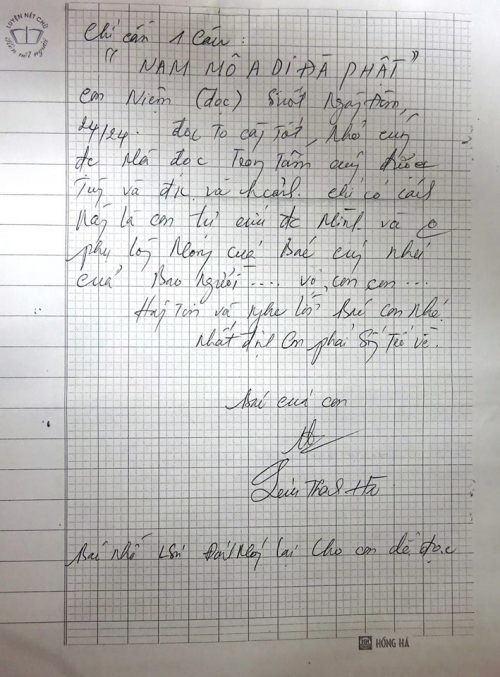 LUYỆN NÉT CHỮ
RÈN NẾT NGƯỜI
Chỉ cần 1 câu:
"NAM MÔ A DI ĐÀ PHẬT"
Con Niệm (đọc) Suốt Ngày Đêm,
24/24. đọc to càng Tốt, Nhỏ cũng
đc Mà đọc Trong Tâm cũng được
Tùy và đk và hcảnh. chỉ có cách
Này là con tự cứu đc Mình. và o
phụ lòng Mong của Bác cũng như
của Bao Người .... vợ, con con ...
Hãy Tin và nghe lời Bác con Nhé.
Nhất định Con phải Sống Trở về.
Bác của con
Bác Nhờ LSư Đánh Máy lại Cho con dễ đọc
HỒNG HÀ